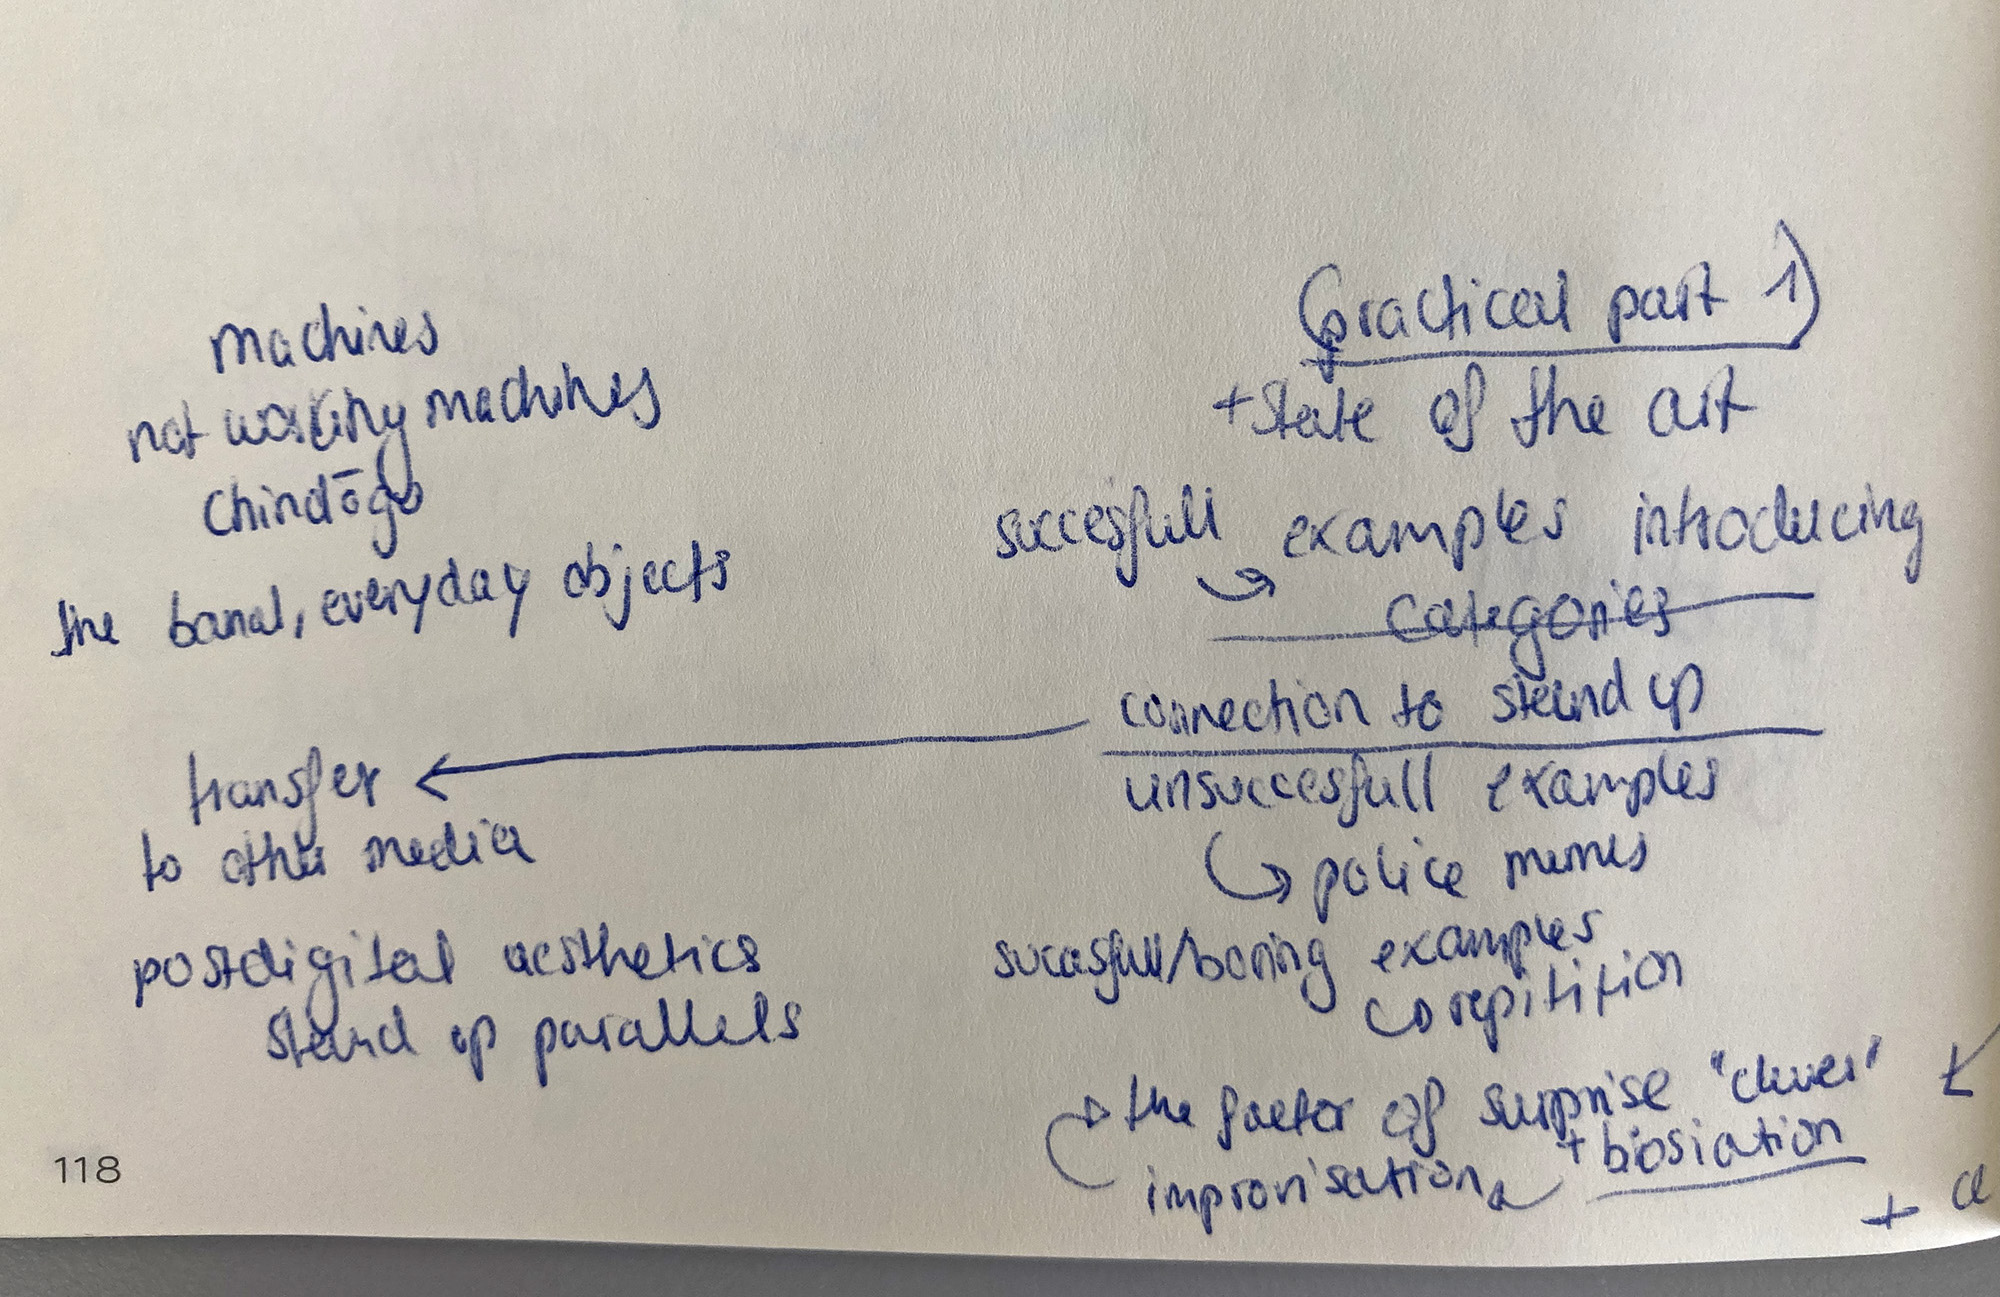 machines
not working machines
Chindōgo
the banal, everyday objects
transfer
to other media
postdigital aesthetics
stand up parallels
118
(practical part 1)
+ State of the art
succesfull examples introducing
categories
connection to stand up
unsuccesfull examples
police memes
succesfull/boring examples
repitition
the factor of surprise "clever"
+ biosiation
improvisation
+